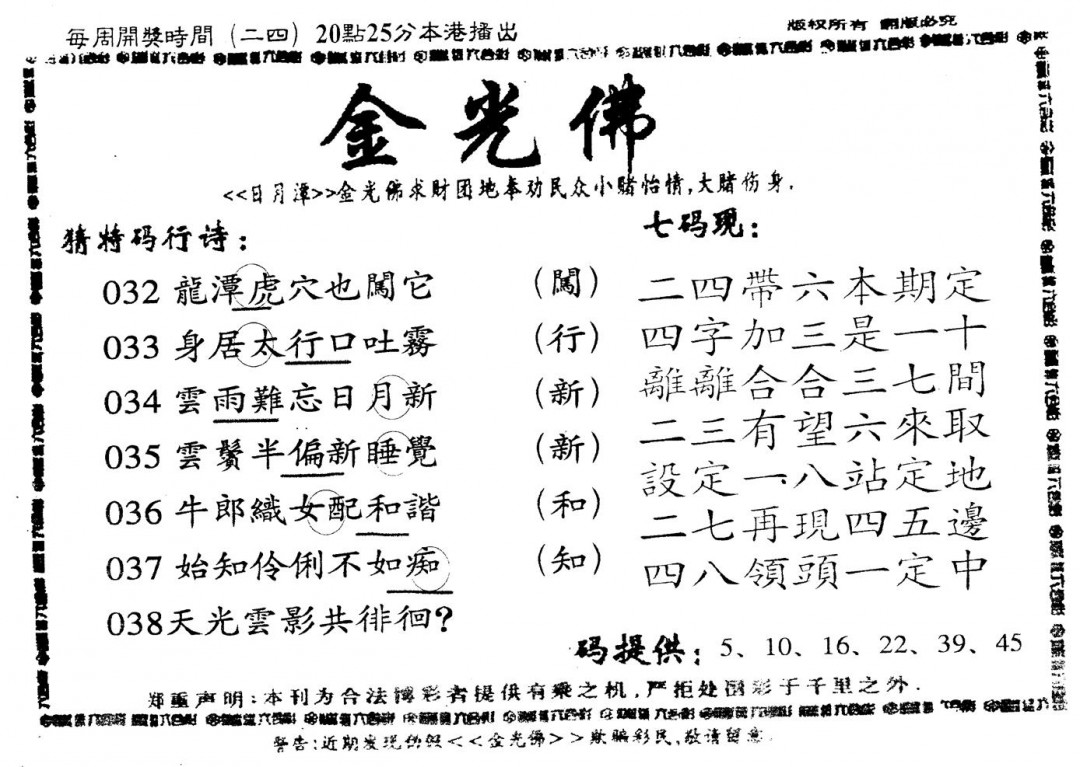 每周開獎時間（二四）20點25分本港播出
版权所有 翻版必究
金光佛
<<日月潭>>金光佛求财团地奉劝民众小赌怡情,大赌伤身.
猜特码行诗：
032 龍潭虎穴也闖它 （闖）
033 身居太行口吐霧 （行）
034 雲雨難忘日月新 （新）
035 雲鬢半偏新睡覺 （新）
036 牛郎織女配和諧 （和）
037 始知伶俐不如痴 （知）
038天光雲影共徘徊?
七码现：
二四帶六本期定
四字加三是一十
離離合合三七間
二三有望六來取
設定一八站定地
二七再現四五邊
四八領頭一定中
码提供：5、10、16、22、39、45
郑重声明:本刊为合法博彩者提供有乘之机,严拒处图彩于千里之外.
警告:近期发现伪假<<金光佛>>欺骗彩民,敬请留意.